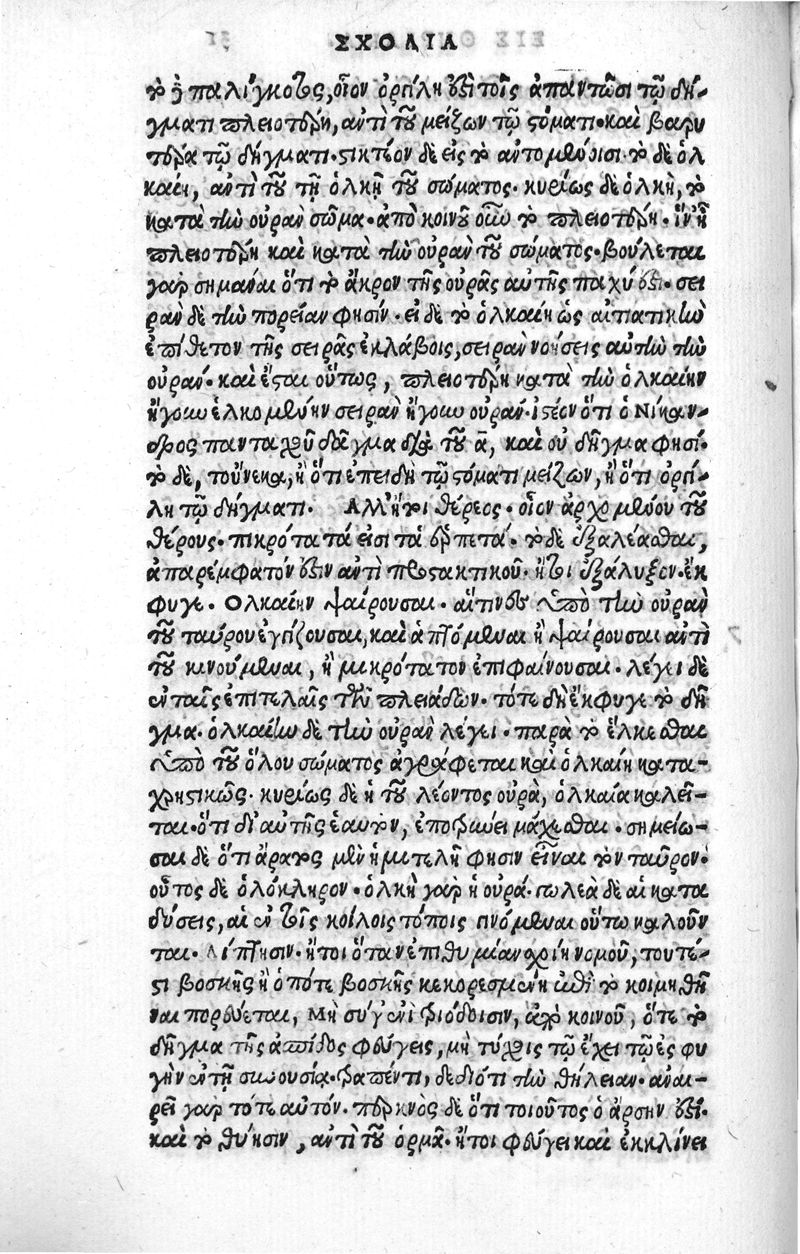 ΣΧΟΛΙΑ
τὸ δὲ παλίγκοτος, οἷον ὀργίλη ἐπὶ τοῖς ἀπαντῶσι τῷ δή-
γματι πλειοτέρη, ἀντὶ τοῦ μείζων τῷ στόματι· καὶ βαρυ
τέρα τῷ δήγματι· στικτέον δὲ εἰς τὸ αὐτομένοισι· τὸ δὲ ὁλ
καίη, ἀντὶ τοῦ τῇ ὁλκῇ τοῦ σώματος· κυρίως δὲ ὁλκὴ, τὸ
κατὰ τὴν οὐρὰν σῶμα· ἀπὸ κοινοῦ οὖν τὸ πλειοτέρη· ἵν' ᾖ
πλειοτέρη καὶ κατὰ τὴν οὐρὰν τοῦ σώματος· βούλεται
γὰρ σημᾶναι ὅτι τὸ ἄκρον τῆς οὐρᾶς αὐτῆς παχύ ἐστι· σει
ρὰν δὲ τὴν πορείαν φησίν· εἰ δὲ τὸ ὁλκαίη ὡς αἰτιατικὴν
ἐπίθετον τῆς σειρᾶς ἐκλάβοις, σειρὰν νοήσεις αὐτὴν τὴν
οὐράν· καὶ ἔσται οὕτως, πλειοτέρη κατὰ τὴν ὁλκαίην
ἤγουν ἑλκομένην σειρὰν ἤγουν οὐράν· ἰστέον ὅτι ὁ Νίκαν-
δρος πανταχοῦ δᾶγμα διὰ τοῦ ᾱ, καὶ οὐ δῆγμα φησί·
τὸ δὲ, τοὔνεκα, ἢ ὅτι ἐπειδὴ τῷ στόματι μείζων, ἢ ὅτι ὀργί-
λη τῷ δήγματι. Ἀλλ' ἤτοι θέρεος· οἷον ἀρχομένου τοῦ
θέρους· πικρότατά εἰσι τὰ ἑρπετά· τὸ δὲ ἐξαλέασθαι,
ἀπαρέμφατόν ἐστιν ἀντὶ προστακτικοῦ· ἤτοι ἐξάλυξον· ἔκ
φυγε. Ὁλκαίην ψαίρουσαι· αἵτινες ὑπὸ τὴν οὐρὰν
τοῦ ταύρου ἐγγίζουσαι, καὶ ἁπτόμεναι ἢ ψαίρουσαι ἀντὶ
τοῦ κινούμεναι, ἢ μικρότατον ἐπιφαίνουσαι· λέγει δὲ
ἐν ταῖς ἐπιτολαῖς τῶν πλειάδων· τότε δὴ ἔκφυγε τὸ δῆ
γμα· ὁλκαίην δὲ τὴν οὐρὰν λέγει· παρὰ τὸ ἕλκεσθαι
ὑπὸ τοῦ ὅλου σώματος ἀγράφεται καὶ ὁλκαίη κατα-
χρηστικῶς· κυρίως δὲ ἡ τοῦ λέοντος οὐρὰ, ὁλκαία καλεῖ-
ται· ὅτι δι' αὐτῆς ἑαυτὸν, ἐποτρύνει μάχεσθαι· σημείω-
σαι δὲ ὅτι ἄρατος μὲν ἡμιτελῆ φησιν εἶναι τὸν ταῦρον·
οὗτος δὲ ὁλόκληρον· ὁλκὴ γὰρ ἡ οὐρά· πωλεὰ δὲ αἱ κατα
δύσεις, αἱ ἐν τοῖς κοίλοις τόποις γινόμεναι οὕτω καλοῦν
ται· Λίπτησιν· ἤτοι ὅταν ἐπιθυμίαν σχοίη νομοῦ, τουτέ-
στι βοσκῆς ἢ ὁπότε βοσκῆς κεκορεσμένη ἐπὶ τὸ κοιμηθῆ
ναι πορεύεται, Μὴ σύ γ' ἐνὶ τριόδοισιν, ἀπὸ κοινοῦ, ὅτε τὸ
δῆγμα τῆς ἀσπίδος φεύγεις, μὴ τύχῃς τῷ ἔχει τῷ ἐς φυ
γὴν ἐν τῇ συνουσίᾳ τραπέντι, δεδιότι τὴν θήλειαν· ἀναι-
ρεῖ γὰρ τότε αὐτόν· περκνὸς δὲ ὅτι τοιοῦτος ὁ ἄρσην ἐστί·
καὶ τὸ θύησιν, ἀντὶ τοῦ ὁρμᾷ· ἤτοι φεύγει καὶ ἐκκλίνει